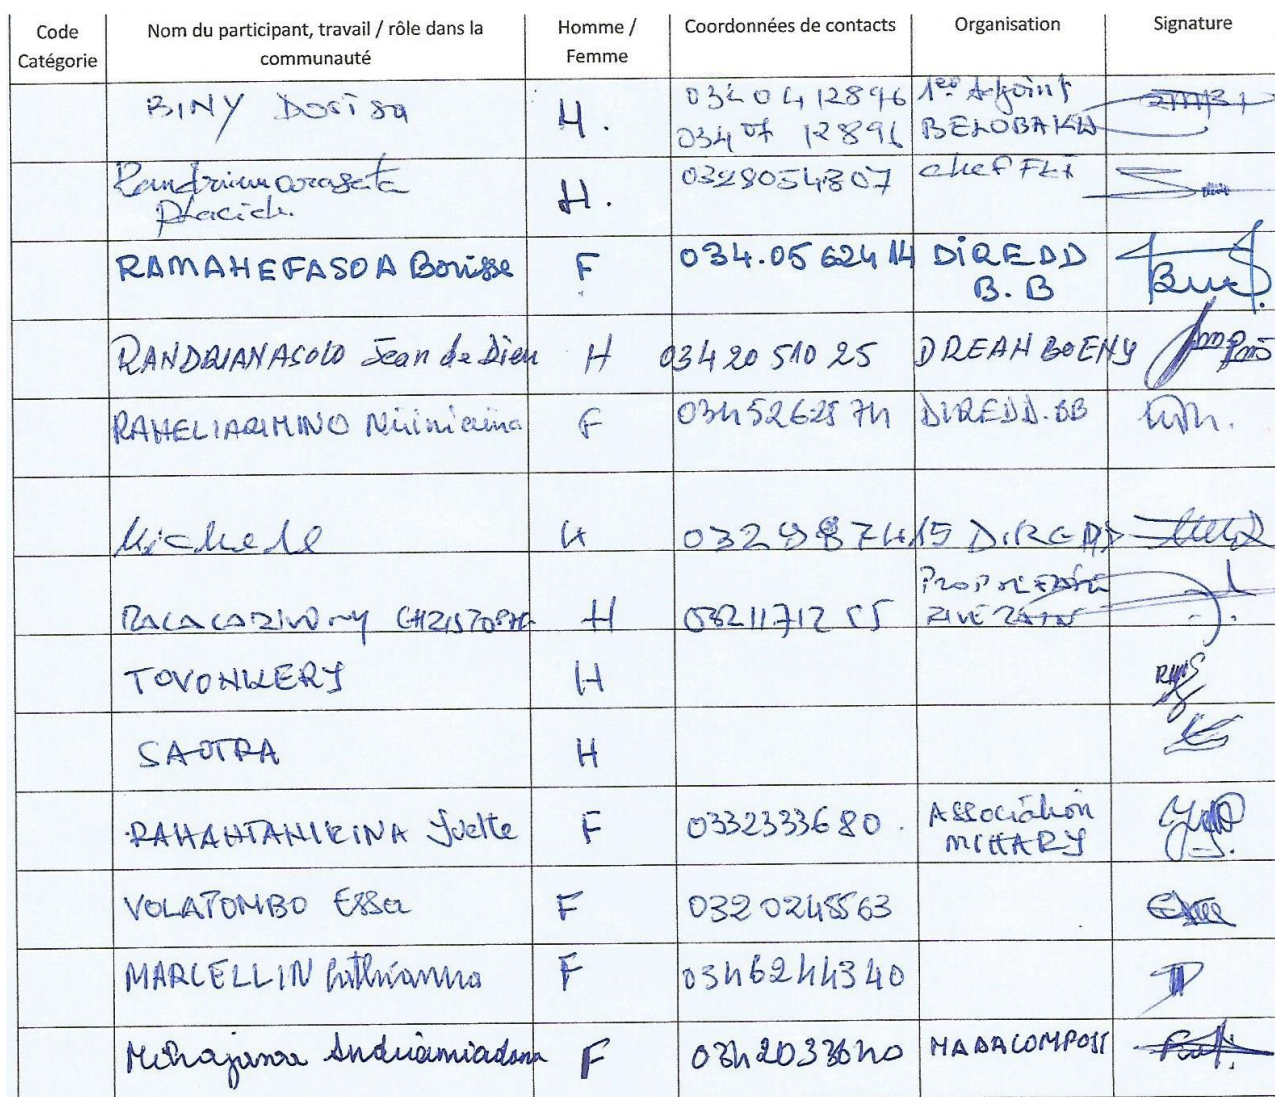 Code Catégorie Nom du participant, travail / rôle dans la communauté Homme / Femme Coordonnées de contacts Organisation Signature
BINY Dosisa H. 0340412896 1er Adjoint
034 07 12896 BELOBAKA
Placide H. 0328054807 chef FKT
RAMAHEFASOA Borisse F 034.05 624 14 DiREDD
B.B
RANDRIANASOLO Jean de Dieu H 034 20 510 25 DREAH BOENY
RAHELIARIMINO F 0345262874 DIREDD.BB
Michele H DIREDD
H 0321171255
TOVONKERY H
SAOTRA H
RAHANTANIRINA Yvette F 0332333680. Association
MIHARY
VOLATOMBO Essa F 0320248563
MARCELLIN F 0346244340
Andriamiadana F 0342033640 MADACOMPOST